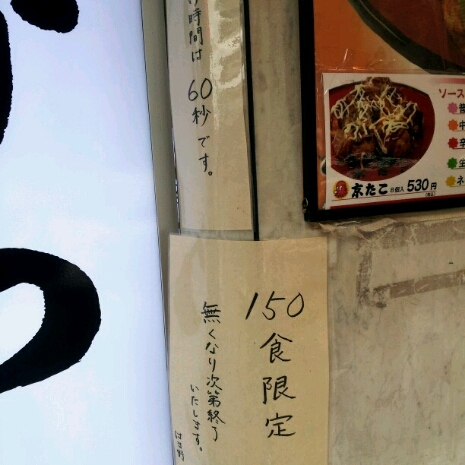 時間は
60秒です。
150食限定
無くなり次第終了
いたします。
ソース
京たこ 8個入 530円